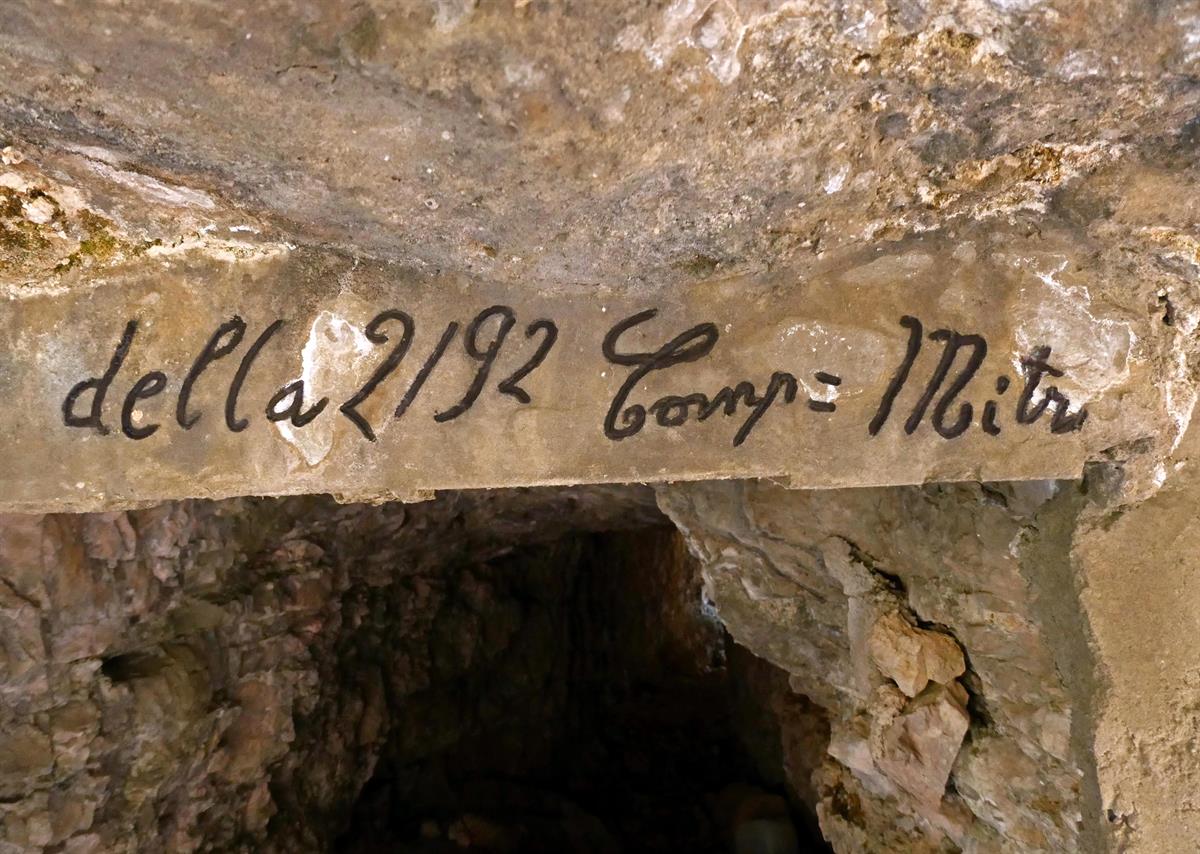 della 2192 Comp= Mitr